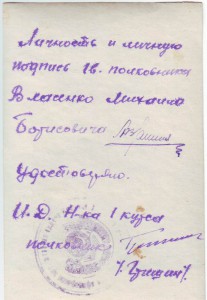 Личность и личную
подпись гв. полковника
Власенко Михаила
Борисовича
Удостоверяю.
И.Д. Н-ка 1 курса
полковник